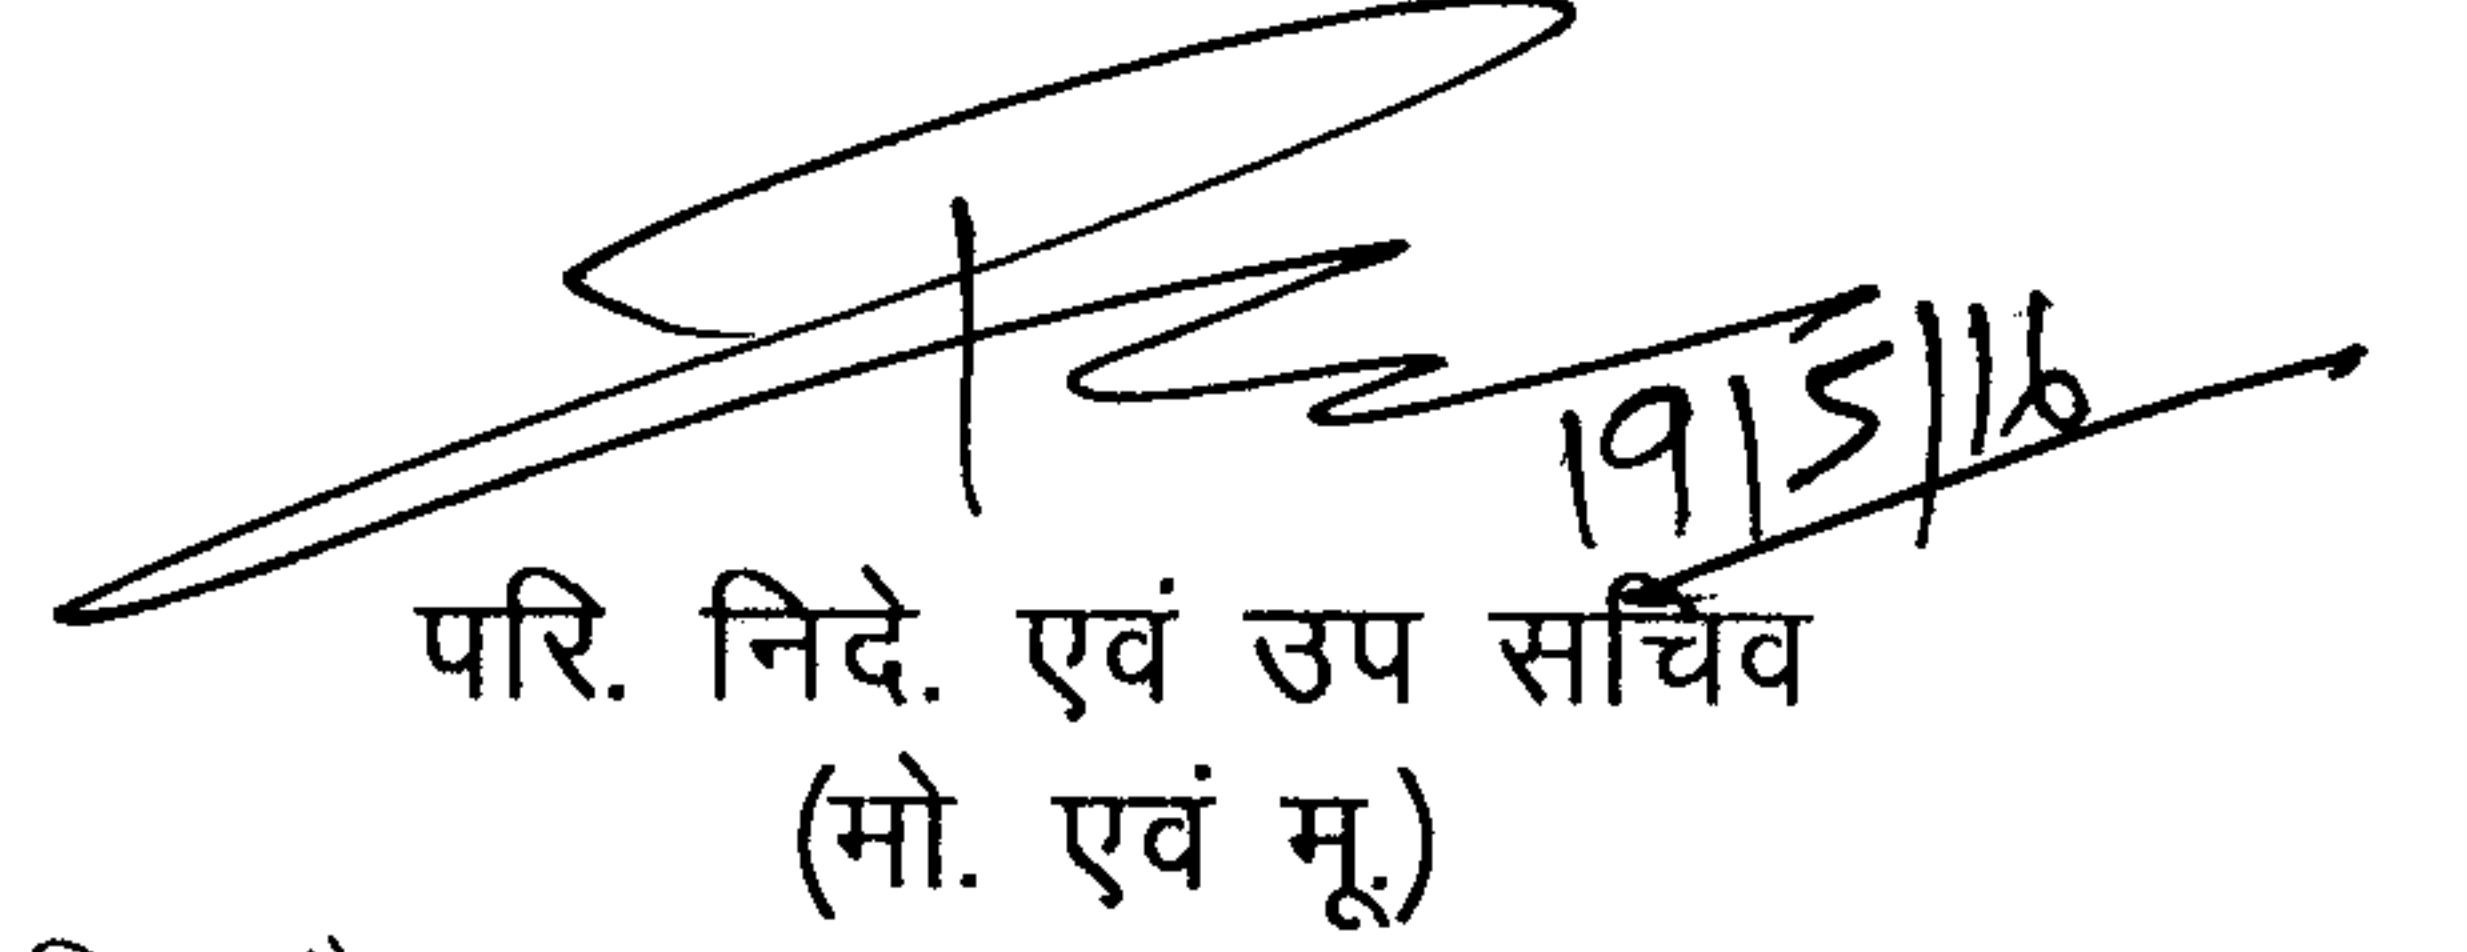 19/5/16
परि. निदे. एवं उप सचिव
(मो. एवं मू.)